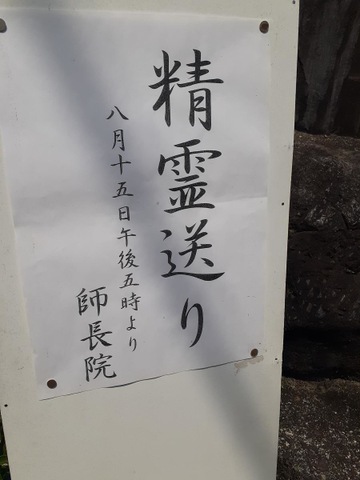 精霊送り
八月十五日午後五時より
師長院